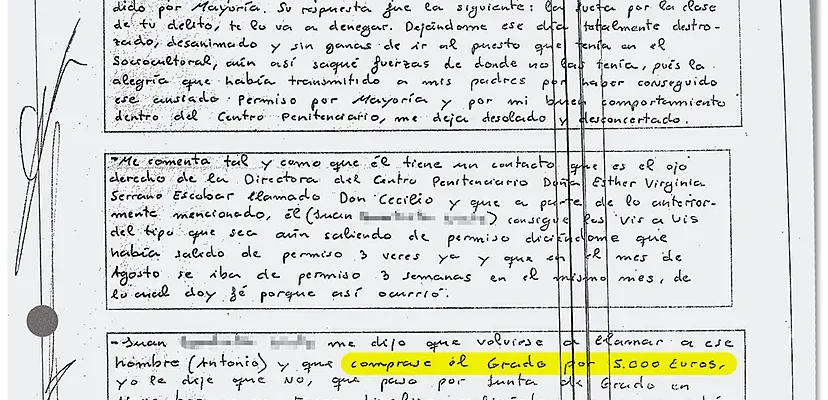 dido por Mayoría. Su respuesta fue la siguiente: la Jueza por la clase
de tu delito, te lo va a denegar. Dejándome ese día totalmente destro-
zado, desanimado y sin ganas de ir al puesto que tenía en el
Sociocultoral, aún así saqué fuerzas de donde no las tenía, pués la
alegría que había transmitido a mis padres por haber conseguido
ese ansiado Permiso por Mayoría y por mi buen comportamiento
dentro del Centro Penitenciario, me deja desolado y desconcertado.
-Me comenta tal y como que él tiene un contacto que es el ojo
derecho de la Directora del Centro Penitenciario Doña Esther Virginia
Serrano Escobar llamado Don Cecilio y que a parte de lo anterior-
mente mencionado, él (Juan) consigue los Vis a Vis
del tipo que sea aún saliendo de permiso diciéndome que
había salido de permiso 3 veces ya y que en el mes de
Agosto se iba de permiso 3 semanas en el mismo mes, de
lo cual doy fé porque así ocurrió.
-Juan me dijo que volviese a llamar a ese
hombre (Antonio) y que comprase el Grado por 5.000 Euros,
yo le dije que NO, que paso por Junta de Grado en